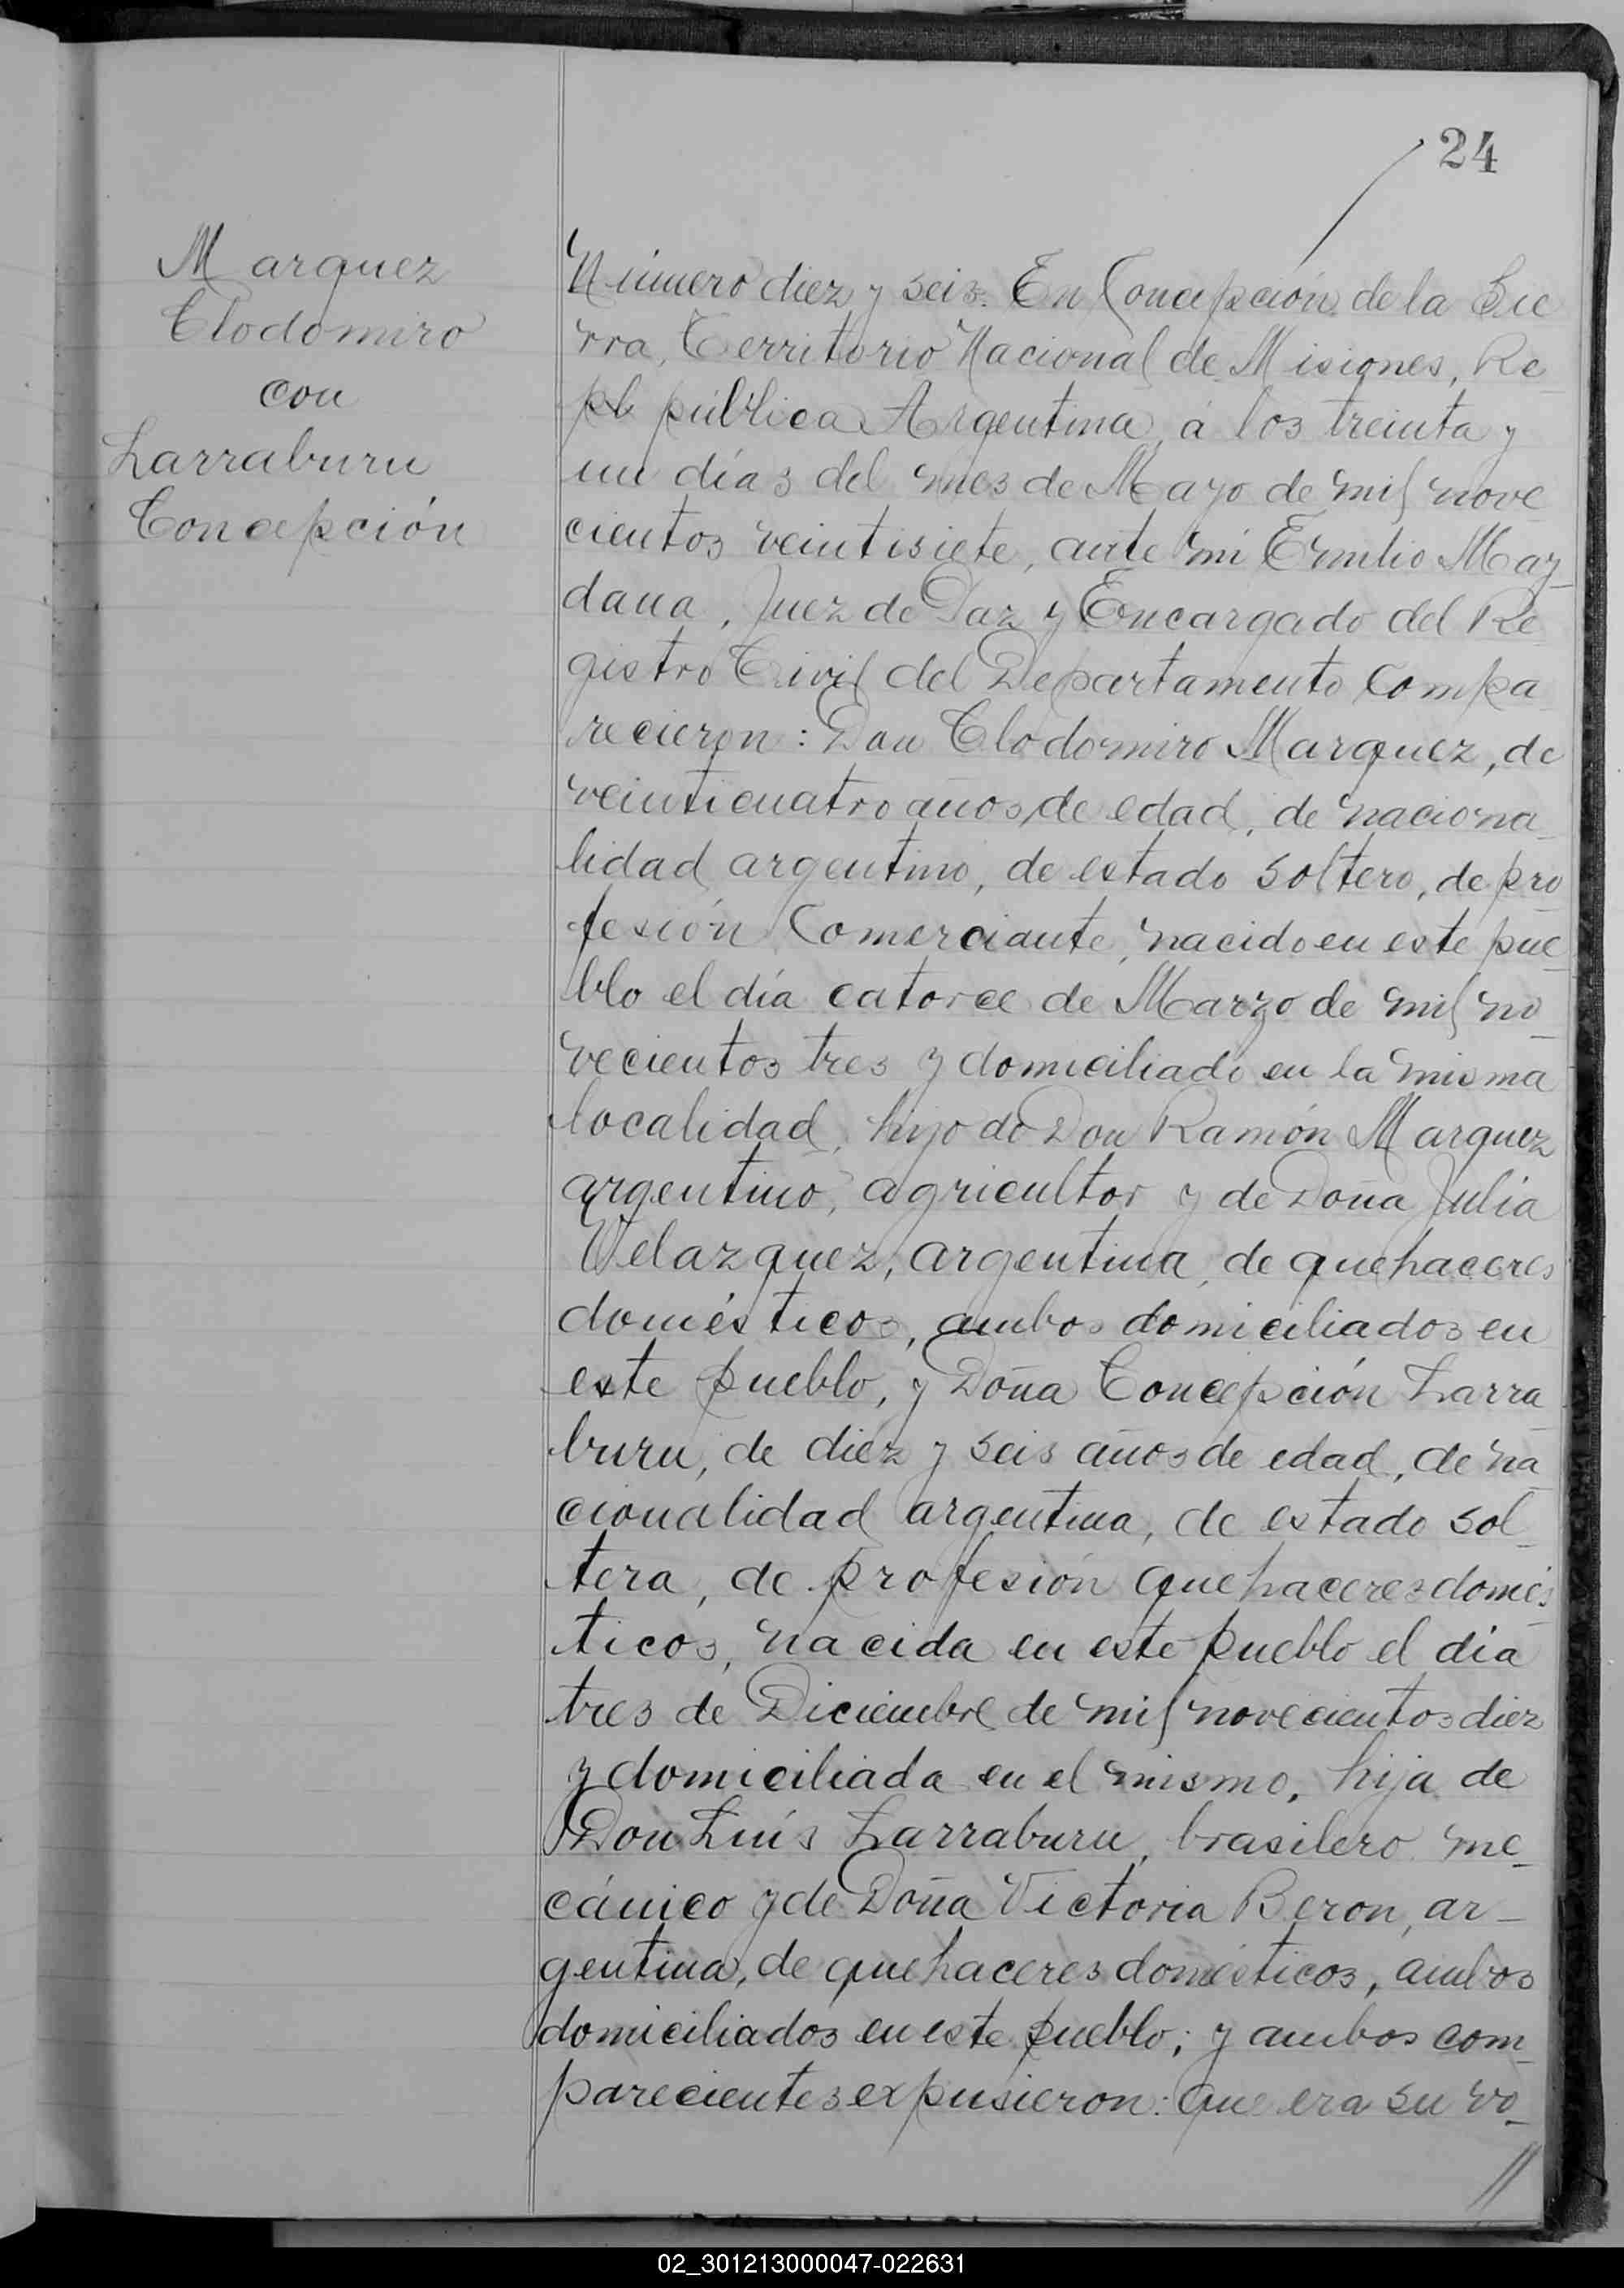 24
Marquez
Clodomiro
con
Larraburu
Concepción
Número diez y seis. En Concepción de la Sie
rra, Territorio Nacional de Misiones, Re
pb pública Argentina, á los treinta y
un días del mes de Mayo de mil nove
cientos veintisiete, ante mi Emilio May
dana, Juez de Paz y Encargado del Re
gistro Civil del Departamento Compa
recieron: Don Clodomiro Marquez, de
veinticuatro años de edad, de naciona
lidad argentino, de estado soltero, de pro
fesión Comerciante, nacido en este pue
blo el día catorce de Marzo de mil no
vecientos tres y domiciliado en la misma
localidad, hijo de Don Ramón Marquez
argentino, agricultor y de Doña Julia
Velazquez, argentina, de quehaceres
domésticos, ambos domiciliados en
este pueblo, y Doña Concepción Larra
buru, de diez y seis años de edad, de na
cionalidad argentina, de estado sol
tera, de profesión quehaceres domés
ticos, nacida en este pueblo el día
tres de Diciembre de mil novecientos diez
y domiciliada en el mismo, hija de
Don Luís Larraburu, brasilero me
cánico y de Doña Victoria Beron, ar-
gentina, de quehaceres domésticos, ambos
domiciliados en este pueblo; y ambos com
parecientes expusieron: que era su vo
//
02_301213000047-022631